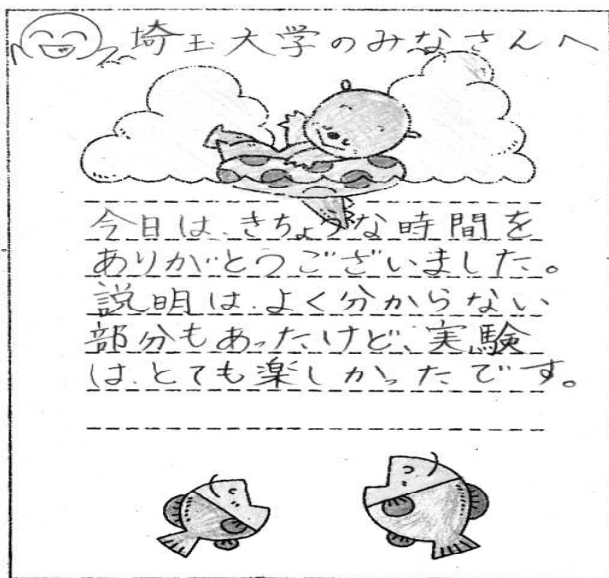 埼玉大学のみなさんへ
今日は、きちょうな時間を
ありがとうございました。
説明は、よく分からない
部分もあったけど、実験
は、とても楽しかったです。